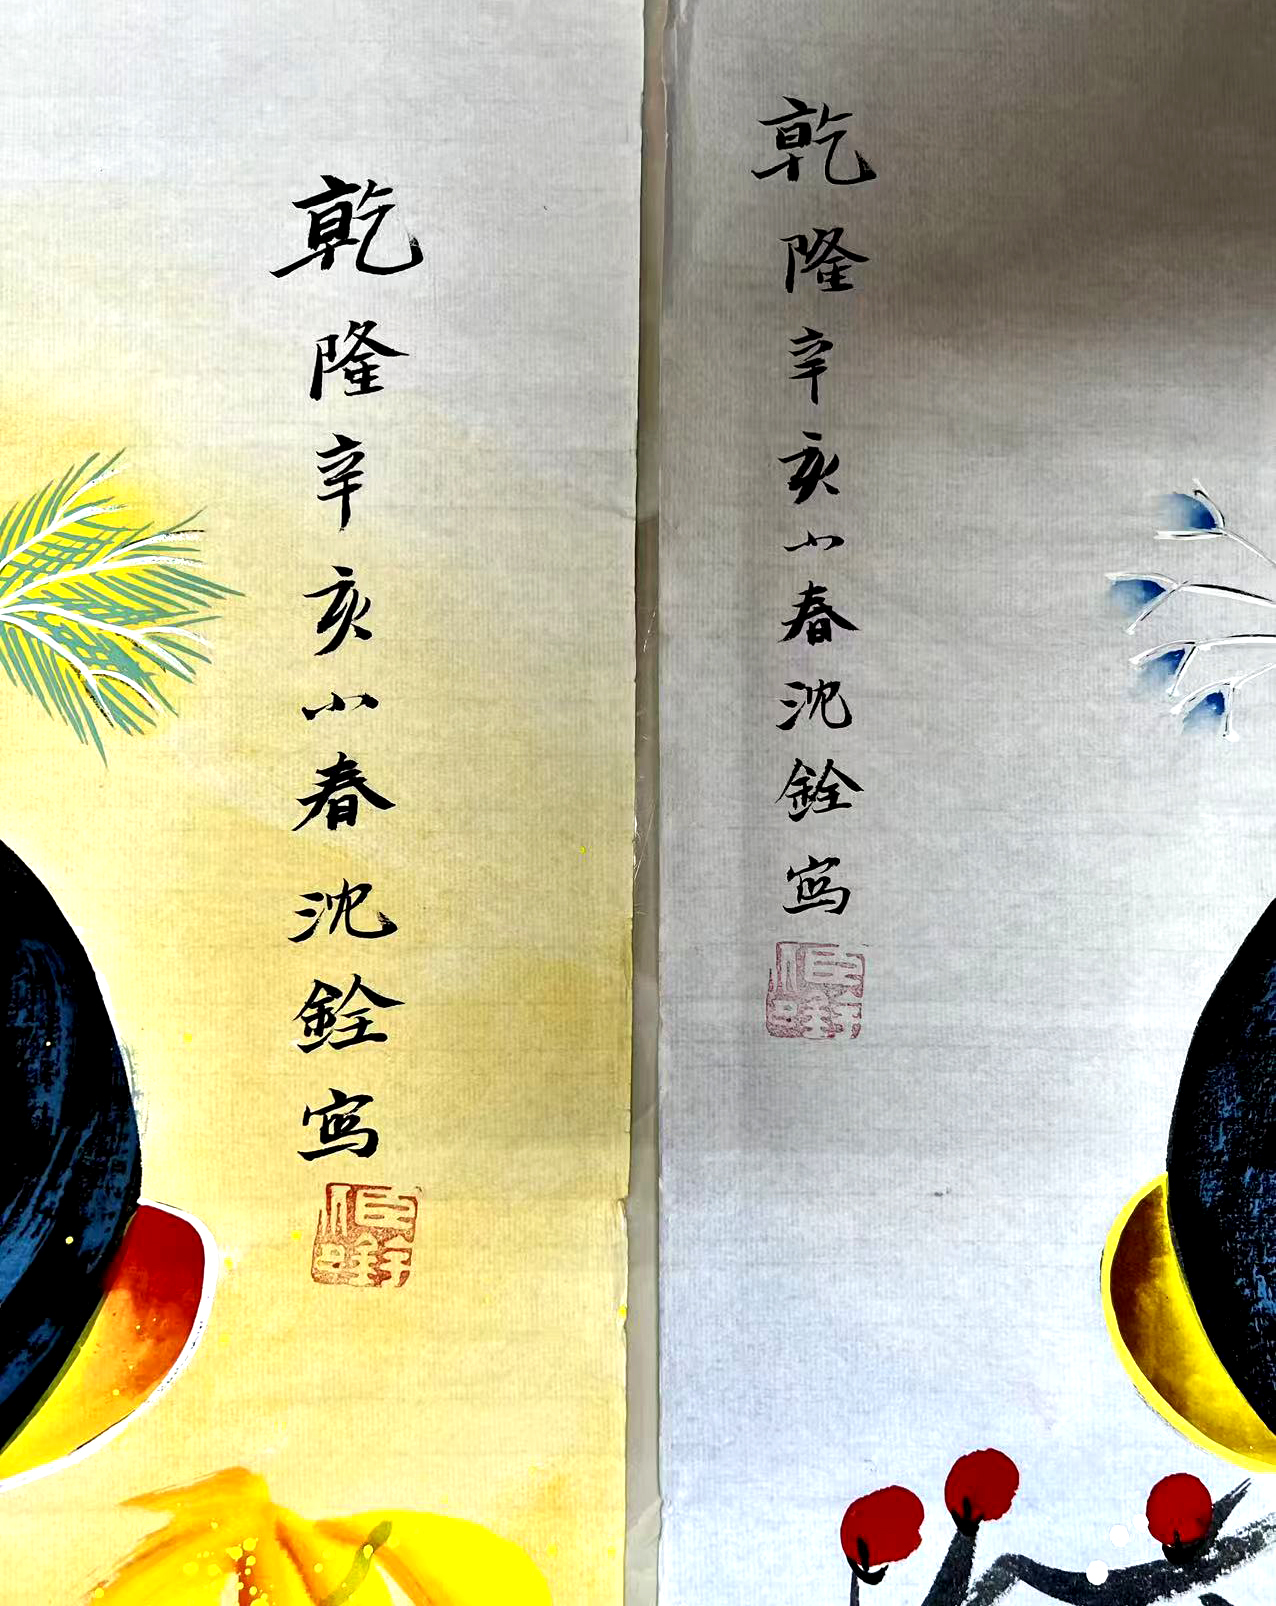 乾隆辛亥小春沈銓写
乾隆辛亥小春沈銓写